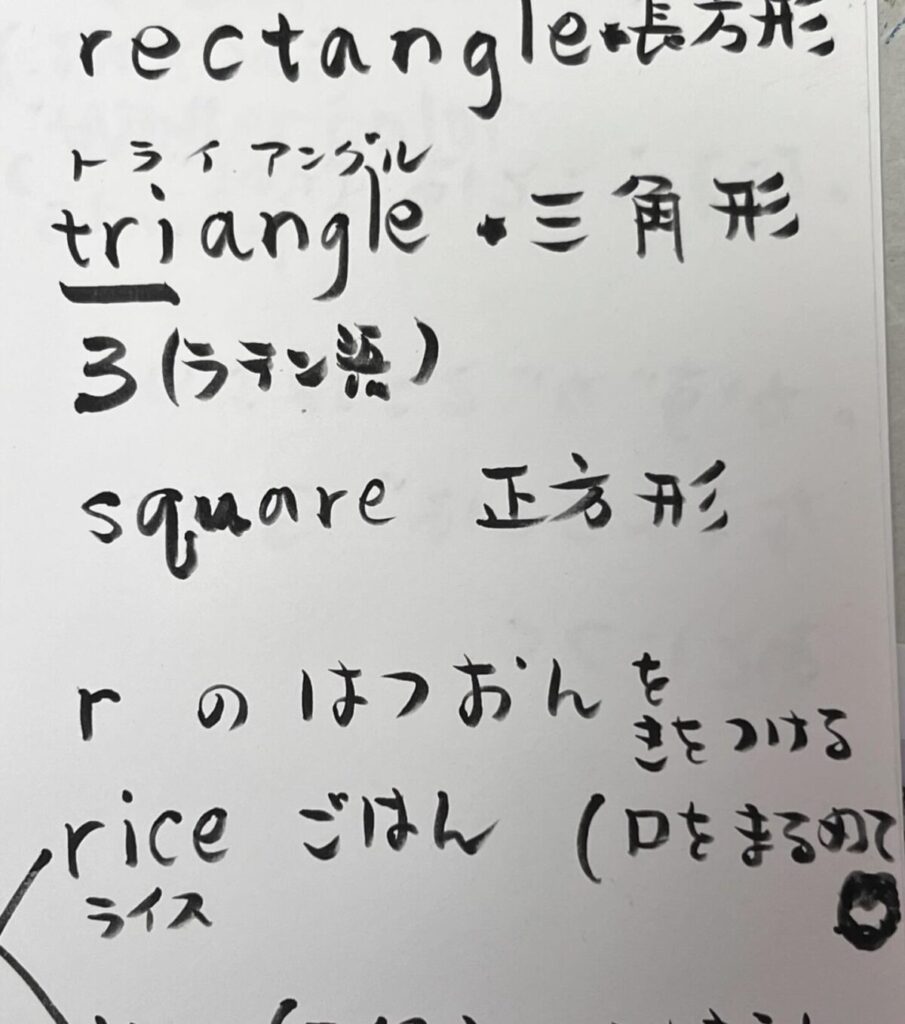 rectangle・長方形
トライアングル
triangle・三角形
3(ラテン語)
square 正方形
r のはつおんを
きをつける
rice ごはん (口をまるめて
ライス